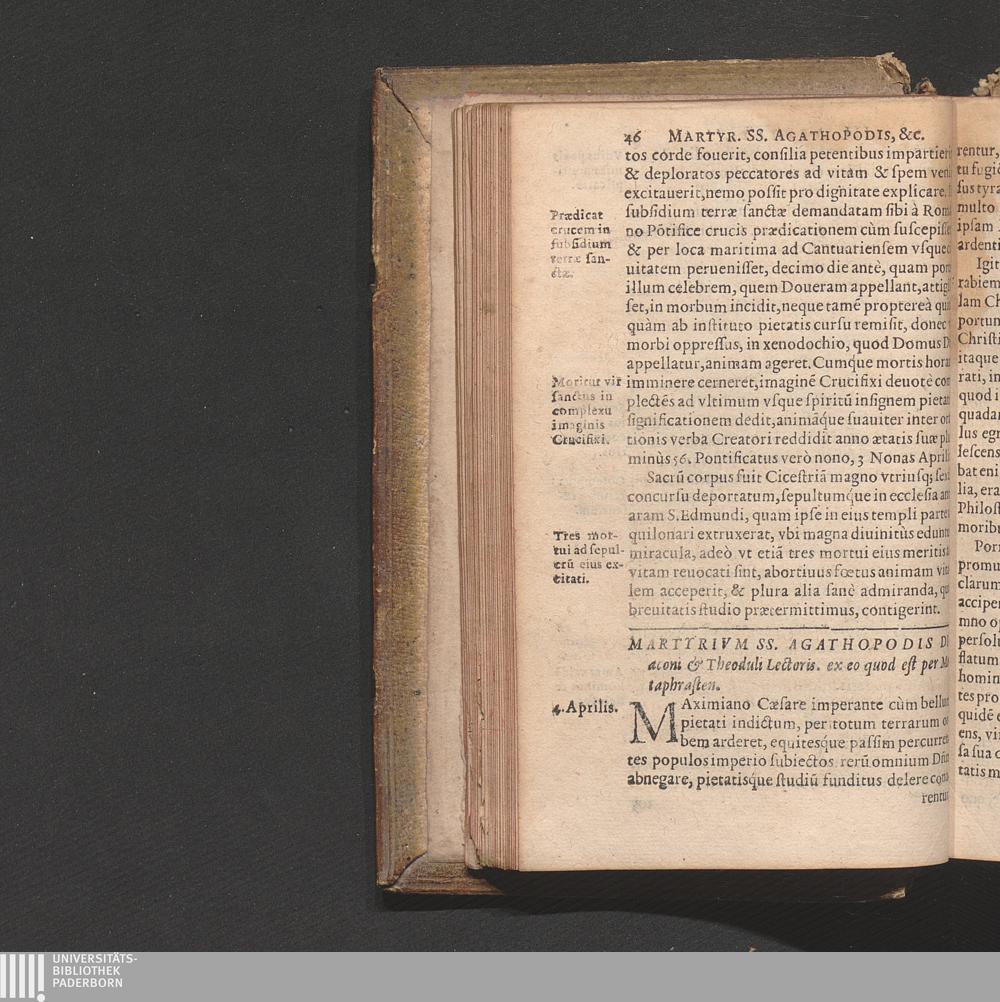 46 MARTYR. SS. AGATHOPODIS, &c.
tos corde fouerit, consilia petentibus impartieri
& deploratos peccatores ad vitam & spem veni
excitauerit, nemo possit pro dignitate explicare.
subsidium terræ sanctæ demandatam sibi à Rom
no Põtifice crucis prædicationem cùm suscepiss
& per loca maritima ad Cantuariensem vsque
uitatem peruenisset, decimo die antè, quam por
illum celebrem, quem Doueram appellant, attig
set, in morbum incidit, neque tamẽ proptereà qu
quàm ab instituto pietatis cursu remisit, donec
morbi oppressus, in xenodochio, quod Domus D
appellatur, animam ageret. Cumque mortis hora
imminere cerneret, imaginẽ Crucifixi deuotè com
plectẽs ad vltimum vsque spiritũ insignem pieta
significationem dedit, animáque suauiter inter or
tionis verba Creatori reddidit anno ætatis suæ pl
minùs 56. Pontificatus verò nono, 3 Nonas April
Sacrũ corpus fuit Cicestriã magno vtriusq; sex
concursu deportatum, sepultumque in ecclesia an
aram S. Edmundi, quam ipse in eius templi parte
quilonari extruxerat, vbi magna diuinitùs edunt
miracula, adeò vt etiã tres mortui eius meritis
vitam reuocati sint, abortiuus fœtus animam vit
lem acceperit, & plura alia sanè admiranda, qu
breuitatis studio prætermittimus, contigerint.
Prædicat
crucem in
subsidium
terræ san-
ctæ.
Moritur vir
sanctus in
complexu
imaginis
Crucifixi.
Tres mor-
tui ad sepul-
crũ eius ex-
citati.
MARTYRIVM SS. AGATHOPODIS DI
aconi & Theoduli Lectoris. ex eo quod est per Me
taphrasten.
4. Aprilis.
MAximiano Cæsare imperante cùm bellum
pietati indictum, per totum terrarum or
bem arderet, equitesque passim percurren
tes populos imperio subiectos rerũ omnium Dñũ
abnegare, pietatisque studiũ funditus delere con
rentur
rentur,
tu fugi
sus tyra
multo
ipsam
ardenti
Igit
rabiem
lam Ch
portun
Christi
itaque
rati, in
quod i
quadam
lus egr
descens
bat eni
lia, era
Philos
moribu
Porr
promu
clarum
accipe
mno o
persolu
flatum
homin
tes pro
quidẽ
ens, vi
sa sua
tatis m
UNIVERSITÄTS-
BIBLIOTHEK
PADERBORN